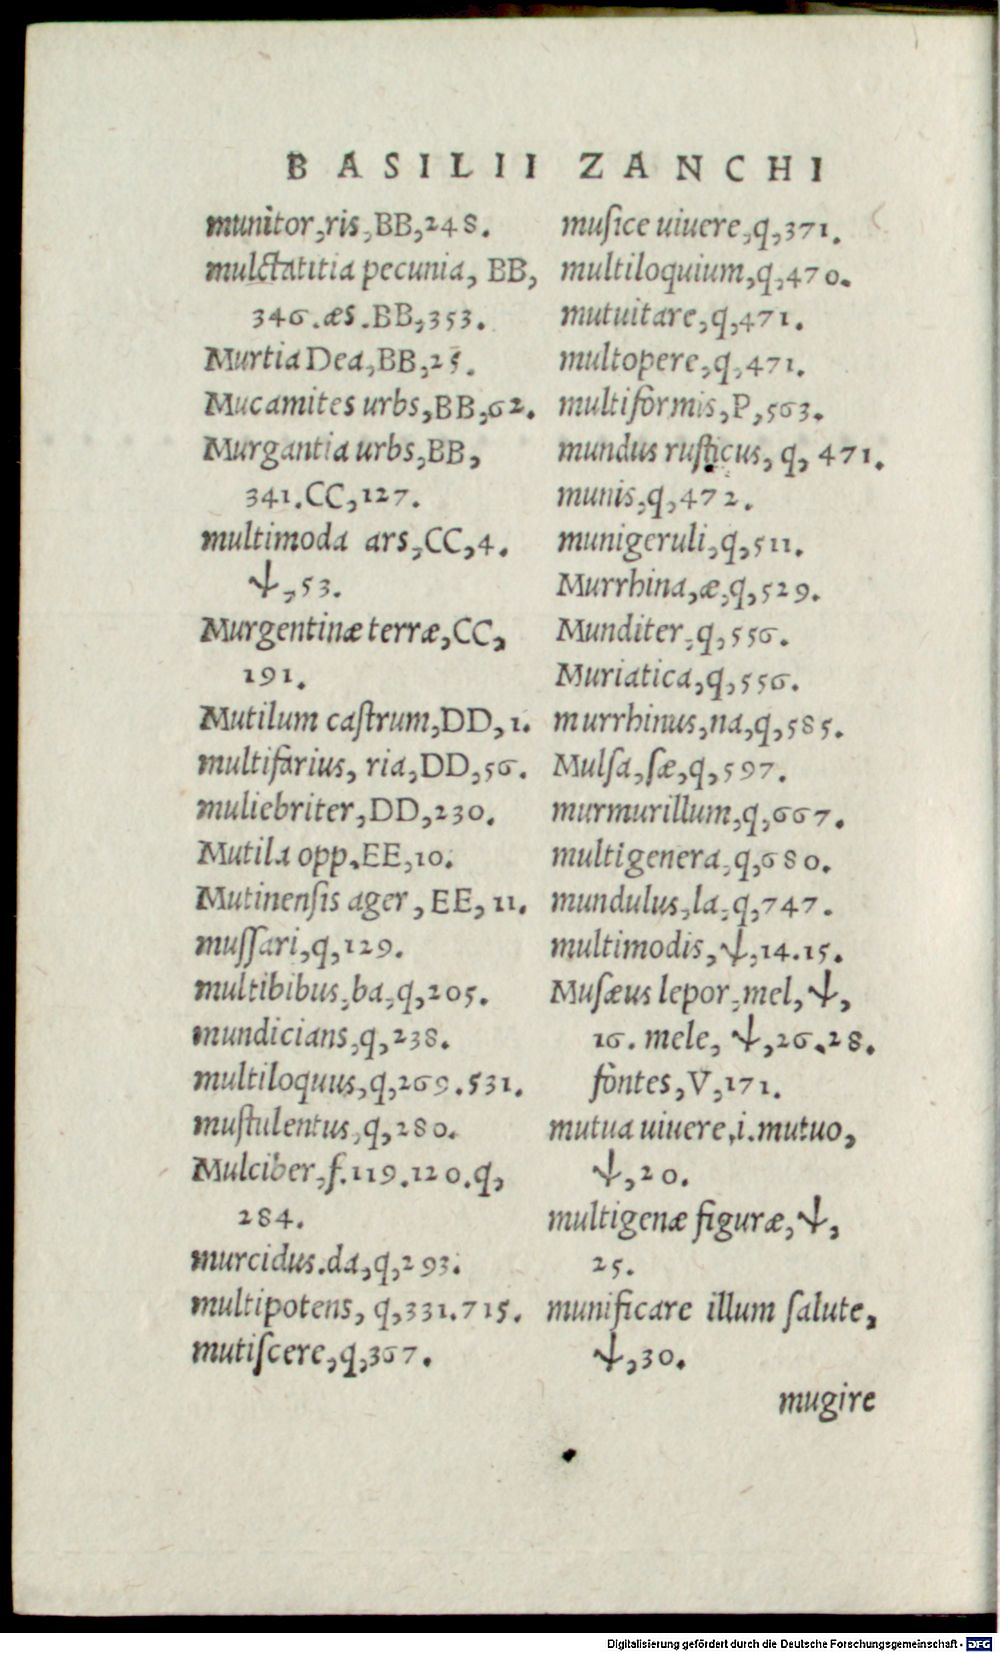 BASILII ZANCHI
munitor,ris,BB,248.
mulctatitia pecunia, BB,
346.æs.BB,353.
Murtia Dea,BB,25.
Mucamites urbs,BB,62.
Murgantia urbs,BB,
341.CC,127.
multimoda ars,CC,4.
ѱ,53.
Murgentinæ terræ,CC,
191.
Mutilum caſtrum,DD,1.
multifarius, ria,DD,56.
muliebriter,DD,230.
Mutila opp.EE,10.
Mutinenſis ager, EE, 11.
muſſari,q,129.
multibibus,ba,q,205.
mundicians,q,238.
multiloquus,q,269.531.
muſtulentus,q,280.
Mulciber,f.119.120.q,
284.
murcidus.da,q,293.
multipotens, q,331.715.
mutiſcere,q,367.
muſice uiuere,q,371.
multiloquium,q,470.
mutuitare,q,471.
multopere,q,471.
multiformis,P,563.
mundus ruſticus, q, 471.
munis,q,472.
munigeruli,q,511.
Murrhina,æ,q,529.
Munditer,q,556.
Muriatica,q,556.
murrhinus,na,q,585.
Mulſa,ſæ,q,597.
murmurillum,q,667.
multigenera,q,680.
mundulus,la,q,747.
multimodis,ѱ,14.15.
Muſæus lepor,mel,ѱ,
16. mele, ѱ,26.28.
fontes,V,171.
mutua uiuere,i.mutuo,
ѱ,20.
multigenæ figuræ,ѱ,
25.
munificare illum ſalute,
ѱ,30.
mugire
Digitalisierung gefördert durch die Deutsche Forschungsgemeinschaft - DFG